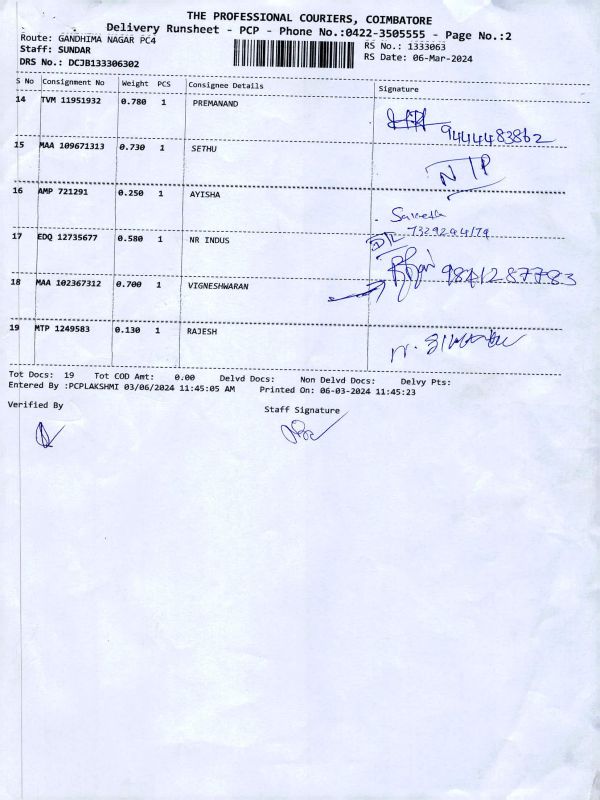 THE PROFESSIONAL COURIERS, COIMBATORE
Delivery Runsheet - PCP - Phone No.:0422-3505555 - Page No.:2
Route: GANDHIMA NAGAR PC4
RS No.: 1333063
Staff: SUNDAR
RS Date: 06-Mar-2024
DRS No.: DCJB133306302
S No Consignment No Weight PCS Consignee Details Signature
14 TVM 11951932 0.780 1 PREMANAND
9444483862
15 MAA 109671313 0.730 1 SETHU
N/P
16 AMP 721291 0.250 1 AYISHA
17 EDQ 12735677 0.580 1 NR INDUS
9841287783
18 MAA 102367312 0.700 1 VIGNESHWARAN
19 MTP 1249583 0.130 1 RAJESH
Tot Docs: 19 Tot COD Amt: 0.00 Delvd Docs: Non Delvd Docs: Delvy Pts:
Entered By :PCPLAKSHMI 03/06/2024 11:45:05 AM Printed On: 06-03-2024 11:45:23
Verified By
Staff Signature